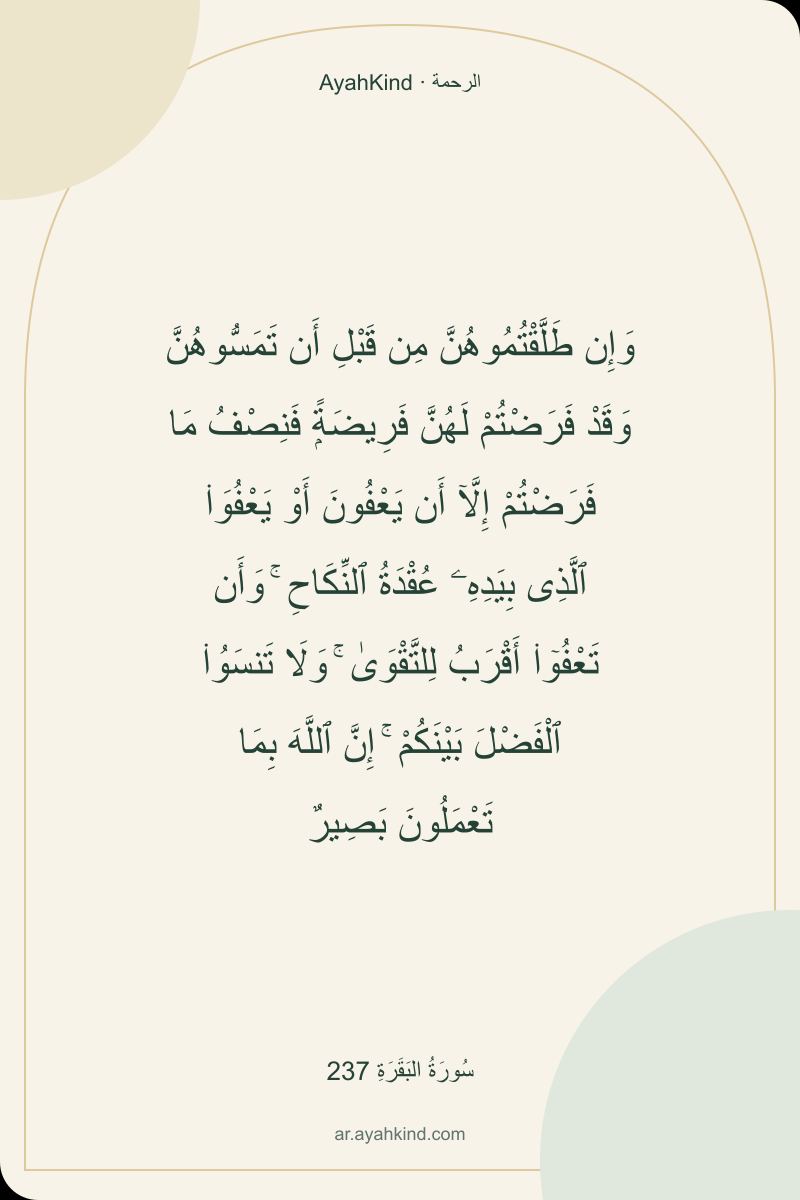 AyahKind · الرحمة
وَإِن طَلَّقْتُمُوهُنَّ مِن قَبْلِ أَن تَمَسُّوهُنَّ
وَقَدْ فَرَضْتُمْ لَهُنَّ فَرِيضَةًۭ فَنِصْفُ مَا
فَرَضْتُمْ إِلَّآ أَن يَعْفُونَ أَوْ يَعْفُوَا۟
ٱلَّذِى بِيَدِهِۦ عُقْدَةُ ٱلنِّكَاحِ ۚ وَأَن
تَعْفُوٓا۟ أَقْرَبُ لِلتَّقْوَىٰ ۚ وَلَا تَنسَوُا۟
ٱلْفَضْلَ بَيْنَكُمْ ۚ إِنَّ ٱللَّهَ بِمَا
تَعْمَلُونَ بَصِيرٌ
سُورَةُ البَقَرَةِ 237
ar.ayahkind.com